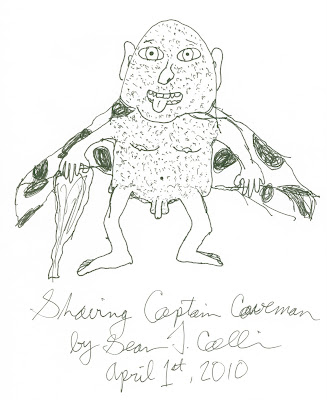 Shaving Captain Caveman
by Sean
April 1st, 2010